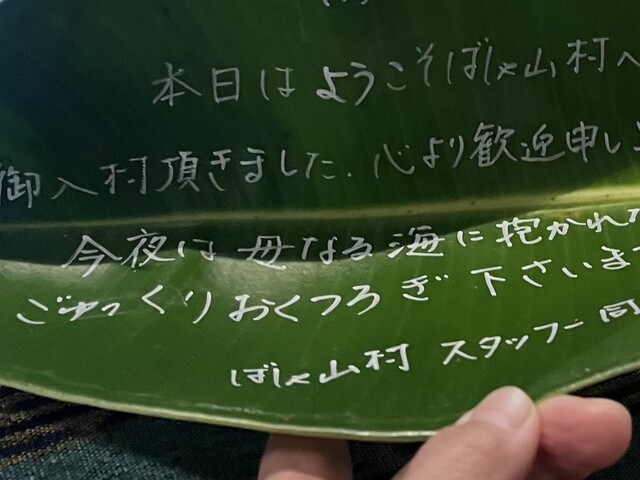 本日は ようこそ ばしゃ山村へ
御入村頂きました. 心より歓迎申し上
今夜は 母なる海に抱かれた
ごゆっくりおくつろぎ下さいます
ばしゃ山村 スタッフ一同